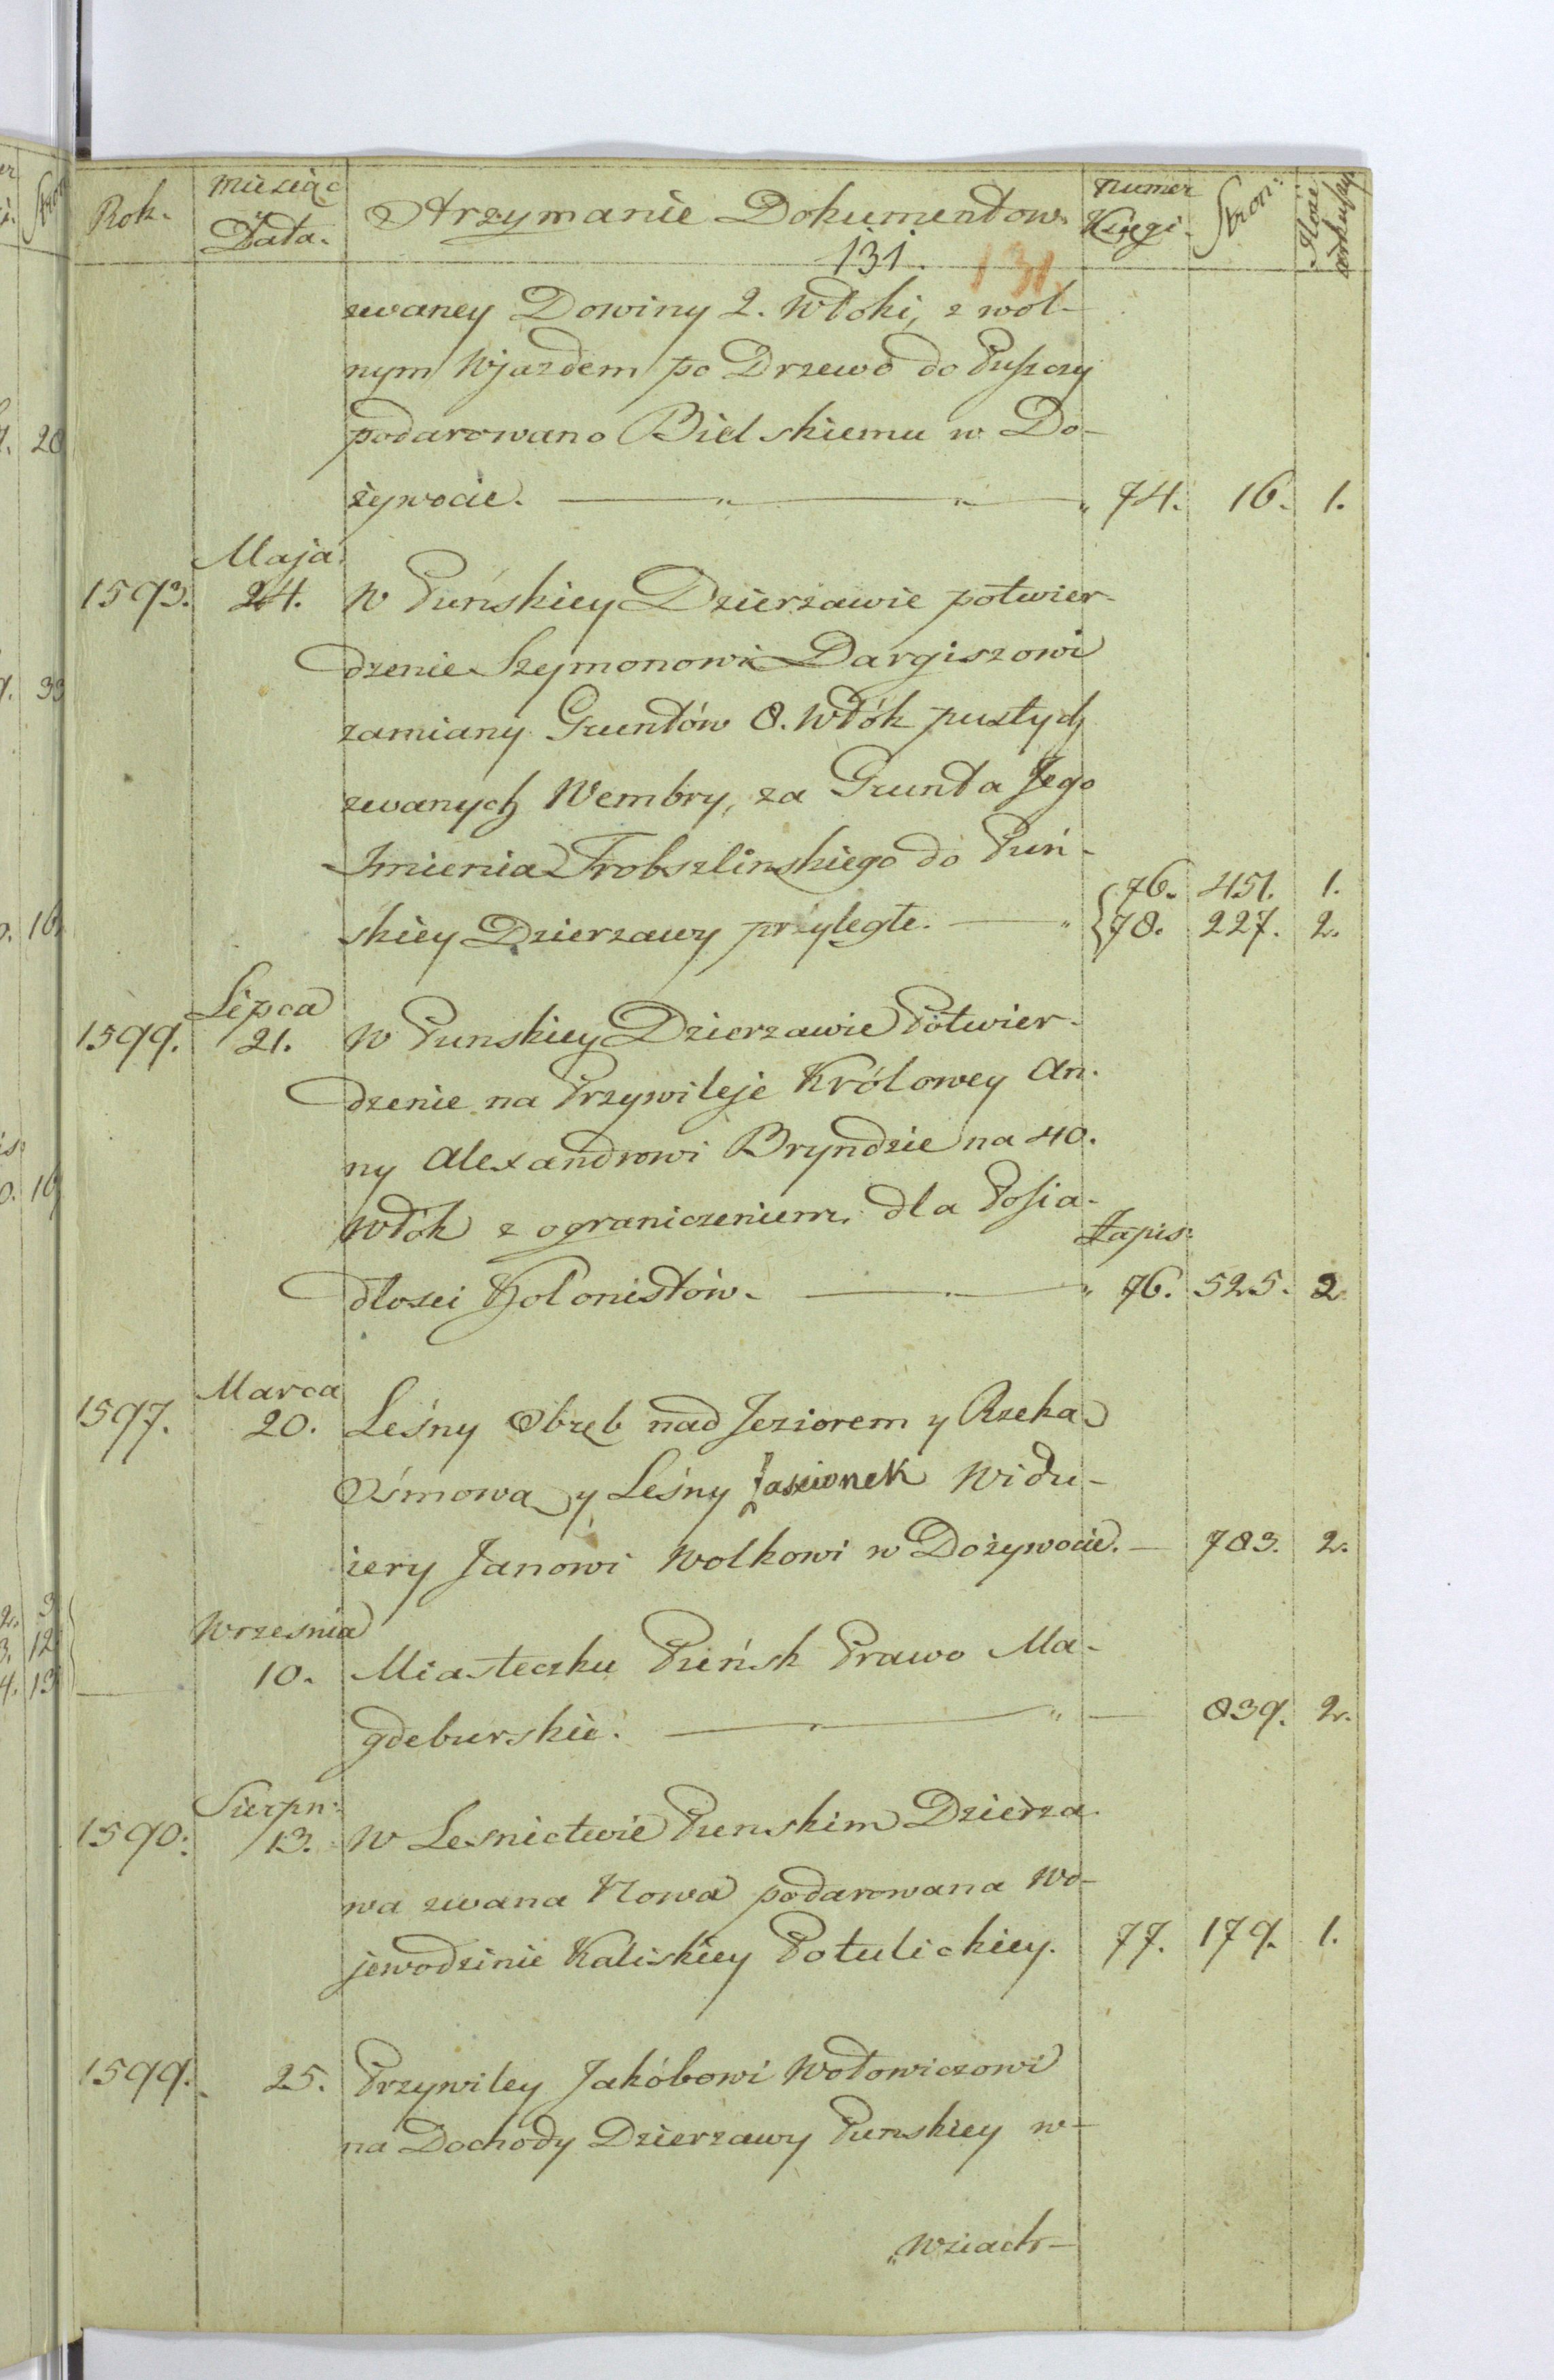 Rok. miesiąc Data. Otrzymanie Dokumentow. numer Księgi. Stron: Ilosc arkuszy
131. 131.
zwaney Dowiny 2. Włoki, z wol-
nym Wjazdem po Drzewo do Puszczy
podarowano Bielskiemu w Do-
żywocie. 74. 16. 1.
Maja
1593. 24. W Puńskiey Dzierżawie potwier-
dzenie Szymonowi Dargiszowi
zamiany Gruntów 8. Włók pustych
zwanych Wembry, za Grunta Jego
Imienia Trobszlinskiego do Puń-
76. 451. 1.
skiey Dzierzawy przyległe. 78. 227. 2.
Lipca
1599. 21. W Punskiey Dzierzawie Potwier-
dzenie na Przywileje Królowey An-
ny Alexandrowi Bryndzie na 40.
Włók z ograniczeniem, dla Posia-
Zapis:
dłosci Kolonistów. 76. 525. 2
Marca
1597. 20. Leśny Obręb nad Jeziorem y Rzeka
Ośmowa y Leśny Jascionek Widu-
iery Janowi Wolkowi w Dożywocie. 783. 2.
Wrzesnia
10. Miasteczku Puńsk Prawo Ma-
gdeburskie. 839. 2.
Sierpn:
1590. 13. W Lesnictwie Punskim Dzierża-
wa zwana Nowa podarowana Wo-
jewodzinie Kaliskiey Potulickiey. 77. 179. 1.
1599. 25. Przywiley Jakóbowi Wołowiczowi
na Dochody Dzierzawy Punskiey w-